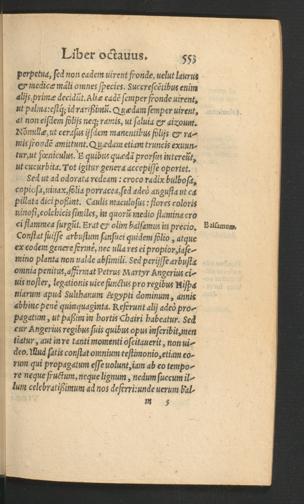 Liber octauus. 553
perpetua, sed non eadem uirent fronde, uelut laurus
& medicæ mali omnes species. Succrescẽtibus enim
alijs, primæ decidũt. Aliæ eadẽ semper fronde uirent,
ut palma: estq́; id rarißimũ. Quædam semper uirent,
at non eisdem folijs neq; ramis, ut salvia & aizoum.
Nõnullæ, ut cerasus ijsdem manentibus folijs & ra-
mis frondẽ amittunt. Quædam etiam truncis exuun-
tur, ut fœniculus. E quibus quædã prorsus intereũt,
ut cucurbita. Tot igitur genera accepisse oportet.
Sed ut ad odorata redeam: croco radix bulbosa,
copiosa, uiuax, folia porracea, sed adeò angusta ut ca
pillata dici poßint. Caulis maculosus: flores coloris
uinosi, colchicis similes, in quorũ medio stamina cro
Balsamum.
ei flammea surgũt. Erat & olim balsamus in precio.
Constat fuisse arbustum sansuci quidem folio, atque
ex eodem genere fermè, nec ulla res ei propior, iase-
mino planta non ualde absimili. Sed perijsse arbusta
omnia penitus, affirmat Petrus Martyr Angerius ci-
uis noster, legationis uice functus pro regibus Hispa
niarum apud Sulthanum Aegypti dominum, annis
abhinc penè quinquaginta. Referunt alij adeò pro-
pagatum, ut paßim in hortis Chairi habeatur. Sed
cur Angerius regibus suis quibus opus inscribit, men
tiatur, aut in re tanti momenti oscitauerit, non ui-
deo. Illud satis constat omnium testimonio, etiam eo-
rum qui propagatum esse uolunt, iam ab eo tempo-
re neque fructum, neque lignum, nedum succum il-
lum celebratißimum ad nos deferri: unde uerum bal-
m 5